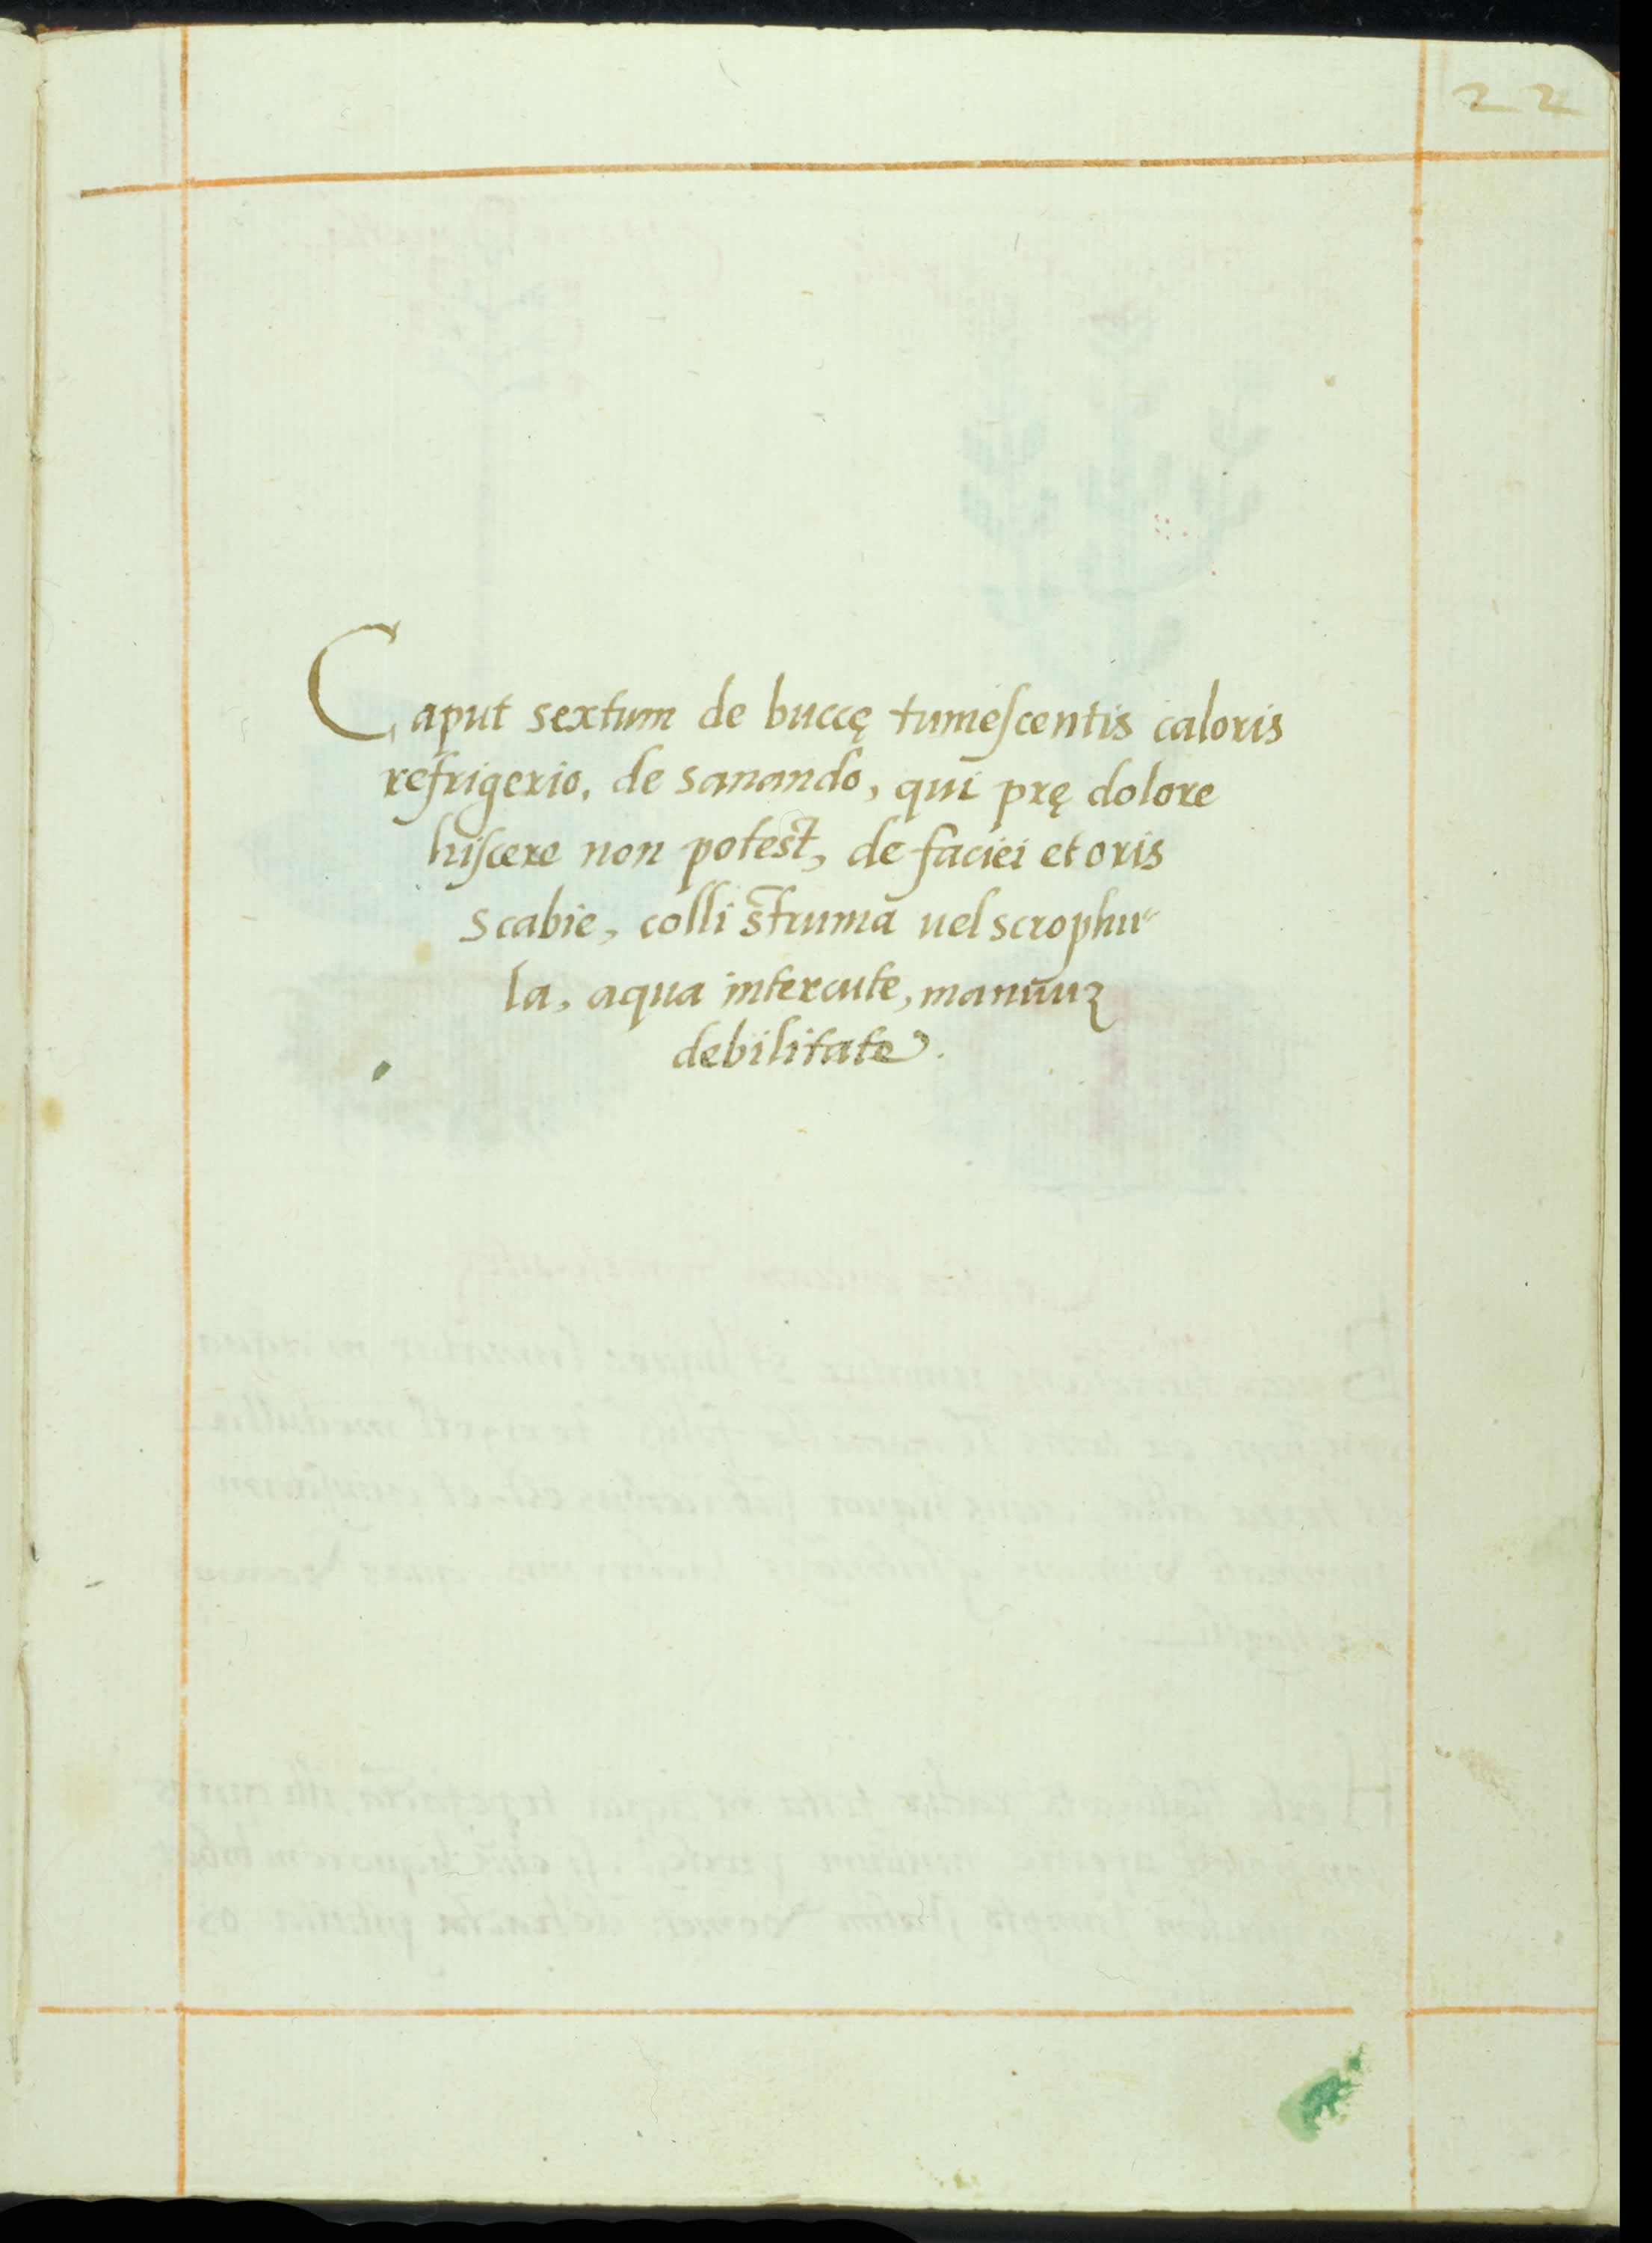 22
Caput sextum de buccę tumeſcentis caloris
refrigerio, de sanando, qui prę dolore
hiſcere non potest, de faciei et oris
scabie, colli strumā uel scrophu„
la, aqua intercute, manūuꝫ
debilitate.